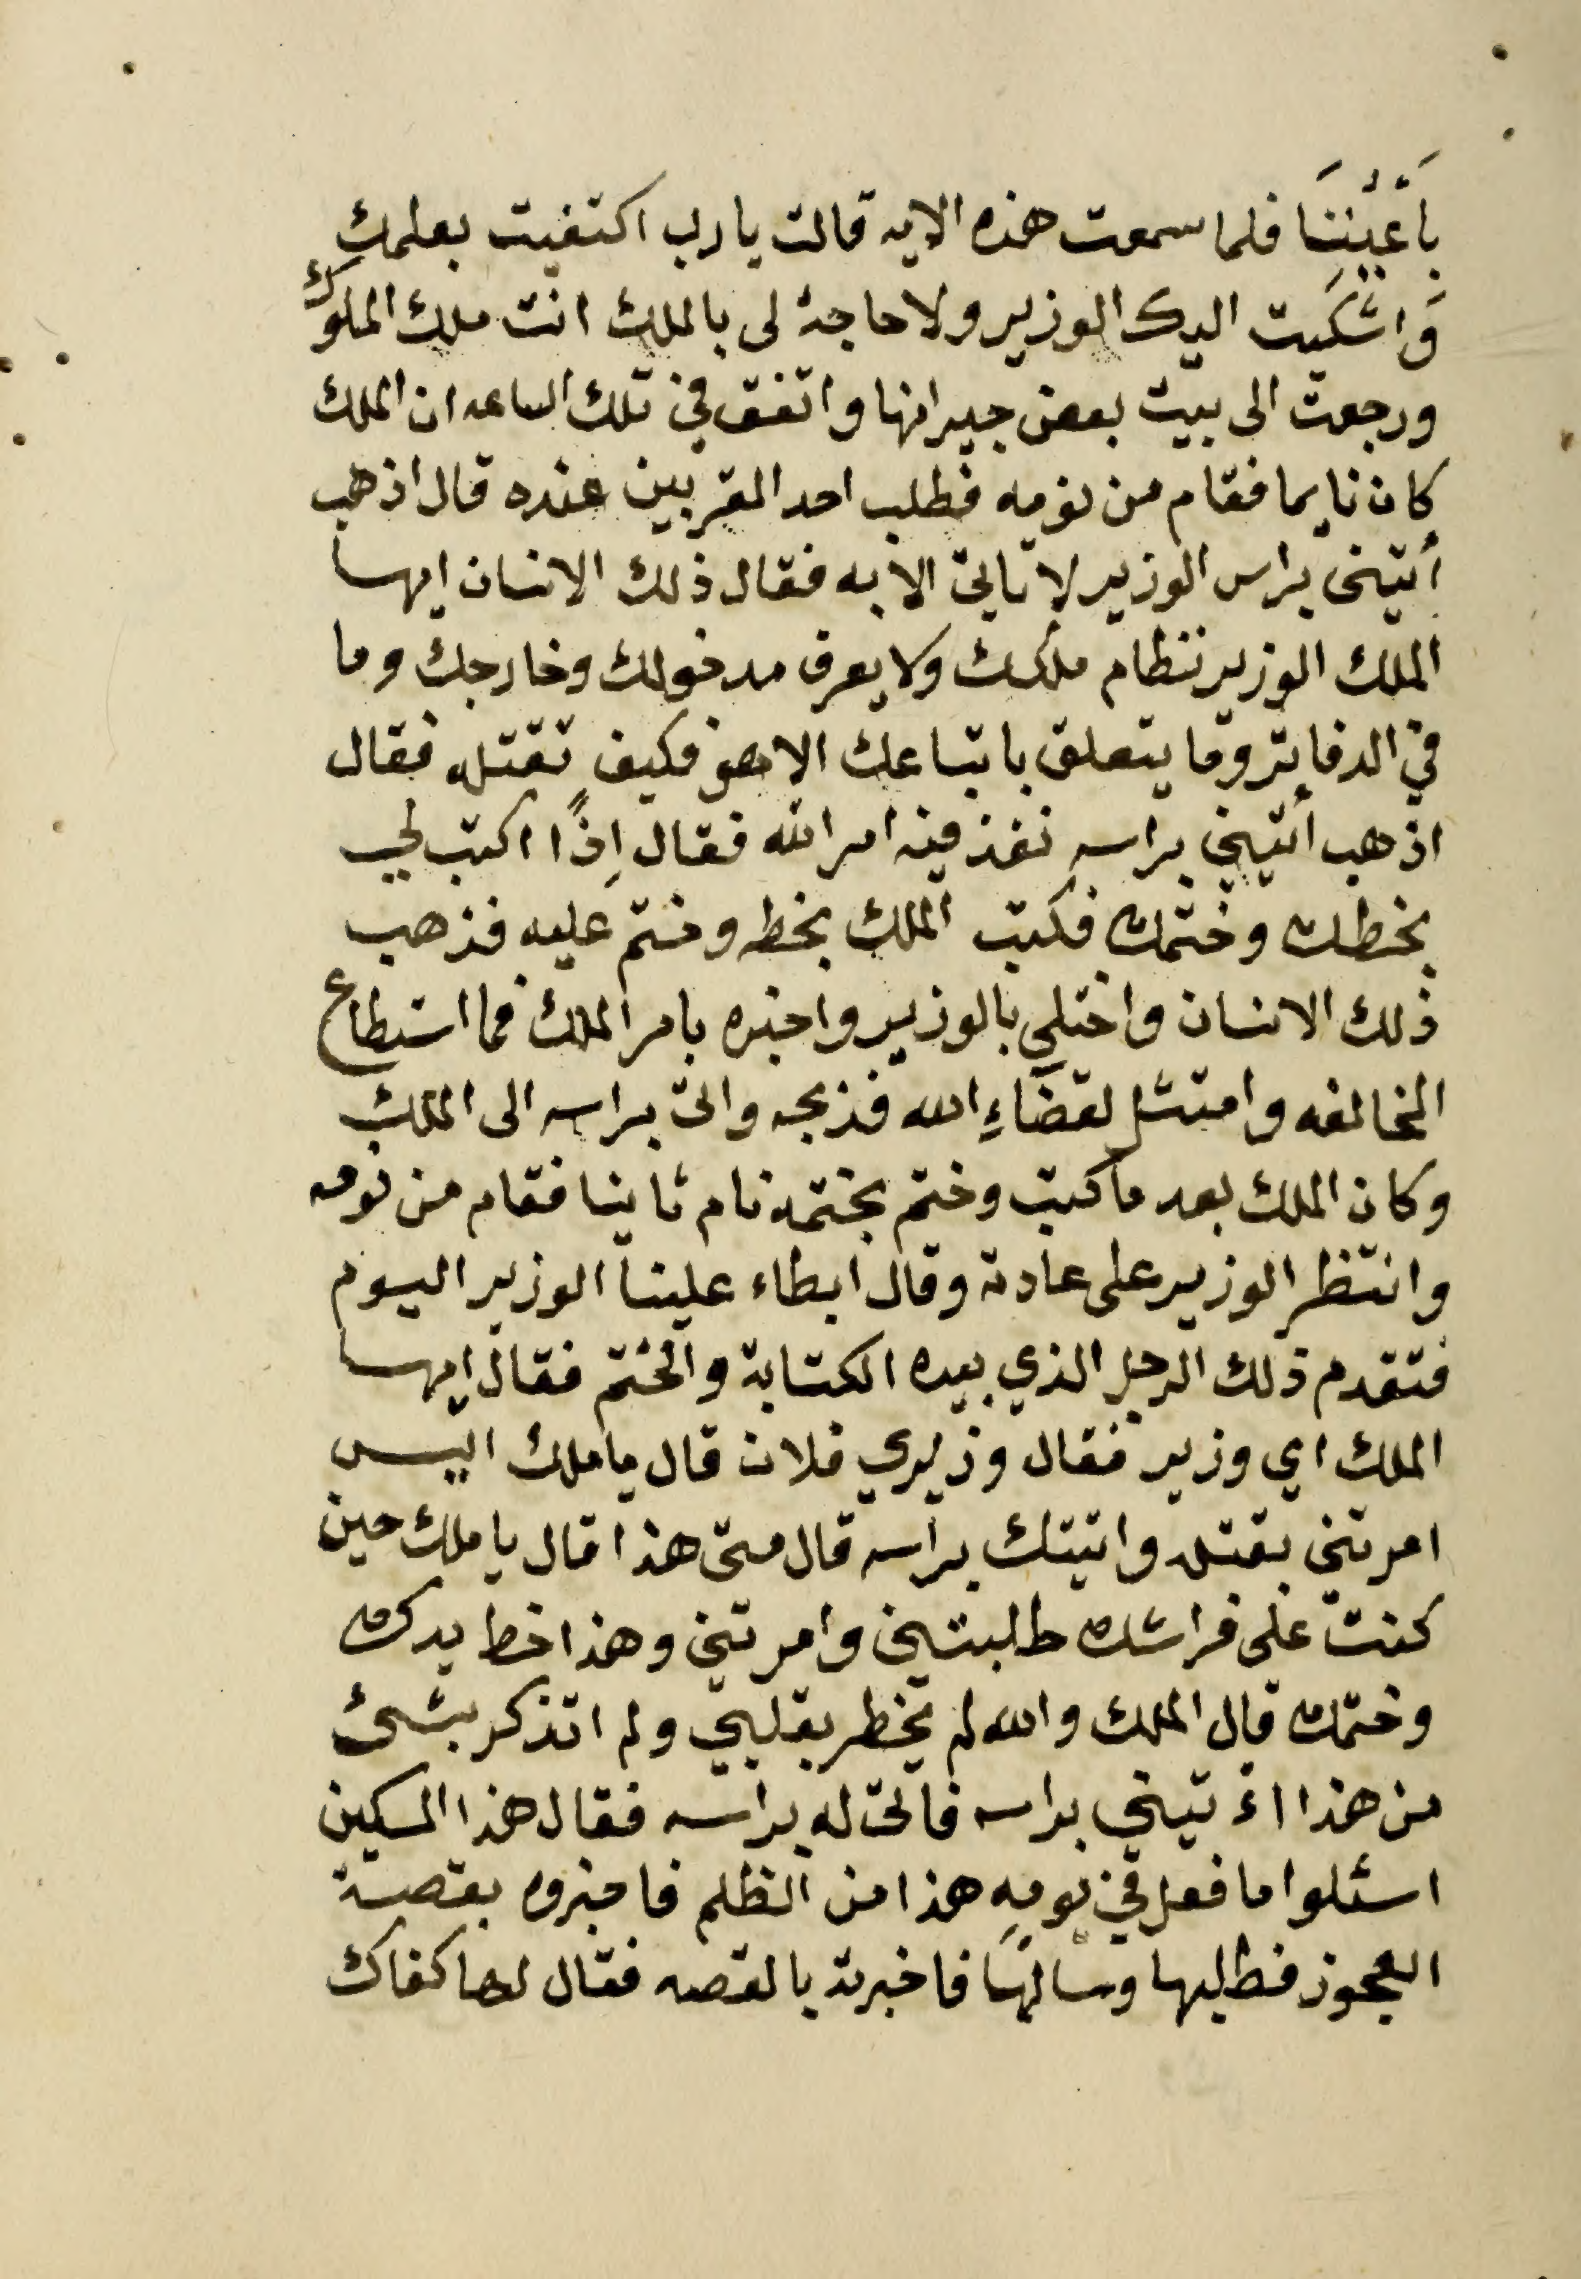 بِأَعْيُنِنَا فلما سمعت هذه الايه قالت يا رب اكتفيت بعلمك
وَاشكيت اليك الوزير ولا حاجة لى بالملك انت ملك الملوك
ورجعت الى بيت بعض جيرانها واتفق في تلك الساعه ان الملك
كان نايما فقام من نومه فطلب احد المقربين عنده قال اذهب
أتيني براس الوزير لا تاتى الا به فقال ذلك الانسان ايها
الملك الوزير نظام ملكك ولا يعرف مدخولك وخارجك وما
في الدفاتر وما يتعلق باتباعك الا هو فكيف تقتله فقال
اذهب أتيني براسهِ نفذ فيه امر الله فقال اِذًا اكتب لي
بخطك وختمك فكتب الملك بخطه وختم عليه فذهب
ذلك الانسان واختلي بالوزير واخبره بامر الملك فما استطاع
المخالفه وامتثل لقضَاءِ الله فذبحه واتى براسه الى الملك
وكان الملك بعد ما كتب وختم بختمه نام ثانيا فقام من نومه
وانتظر الوزير على عادته وقال ابطاء علينا الوزير اليوم
فتقدم ذلك الرجل الذي بيده الكتابة والختم فقال ايها
الملك اي وزير فقال وزيري فلان قال يا ملك اليس
امرتني بقتله واتيتك براسه قال متى هذا قال يا ملك حين
كنت على فراشك طلبتني وامرتني وهذا خط يدك
وختمك قال الملك والله لم يخطر بقلبي ولم اتذكر بشئ
من هذا اءتيني براسه فاتى له براسه فقال هذا المسكين
اسئلوا ما فعل في يومِهِ هذا من الظلم فاخبروه بقصة
العجوز فطلبها وسالهَا فاخبرته بالقصه فقال لها كفاك